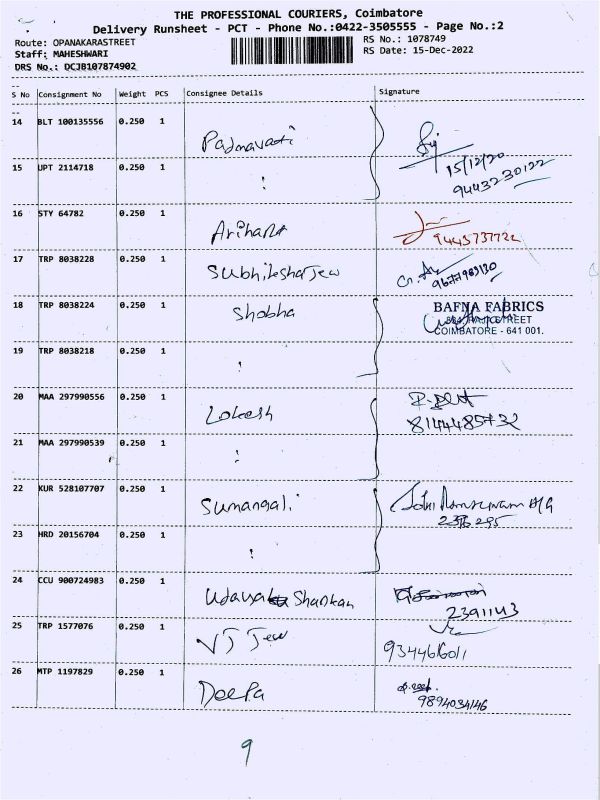 THE PROFESSIONAL COURIERS, Coimbatore
Delivery Runsheet - PCT - Phone No.:0422-3505555 - Page No.:2
Route: OPANAKARASTREET RS No.: 1078749
Staff: MAHESHWARI RS Date: 15-Dec-2022
DRS No.: DCJB107874902
S No Consignment No Weight PCS Consignee Details Signature
14 BLT 100135556 0.250 1 Padmavati
15/12/20
15 UPT 2114718 0.250 1 :
9443230122
16 STY 64782 0.250 1 Arihant
9445737722
17 TRP 8038228 0.250 1 Subhiksha Jew
18 TRP 8038224 0.250 1 Shobha BAFNA FABRICS
STREET
COIMBATORE - 641 001.
19 TRP 8038218 0.250 1 :
20 MAA 297990556 0.250 1 Lokesh
8144485732
21 MAA 297990539 0.250 1 :
22 KUR 528107707 0.250 1 Sumangali
23 HRD 20156704 0.250 1 :
24 CCU 900724983 0.250 1 Udaya Shankar
2391143
25 TRP 1577076 0.250 1 VJ Jew
9344616011
26 MTP 1197829 0.250 1 Deepa
9894034146
9